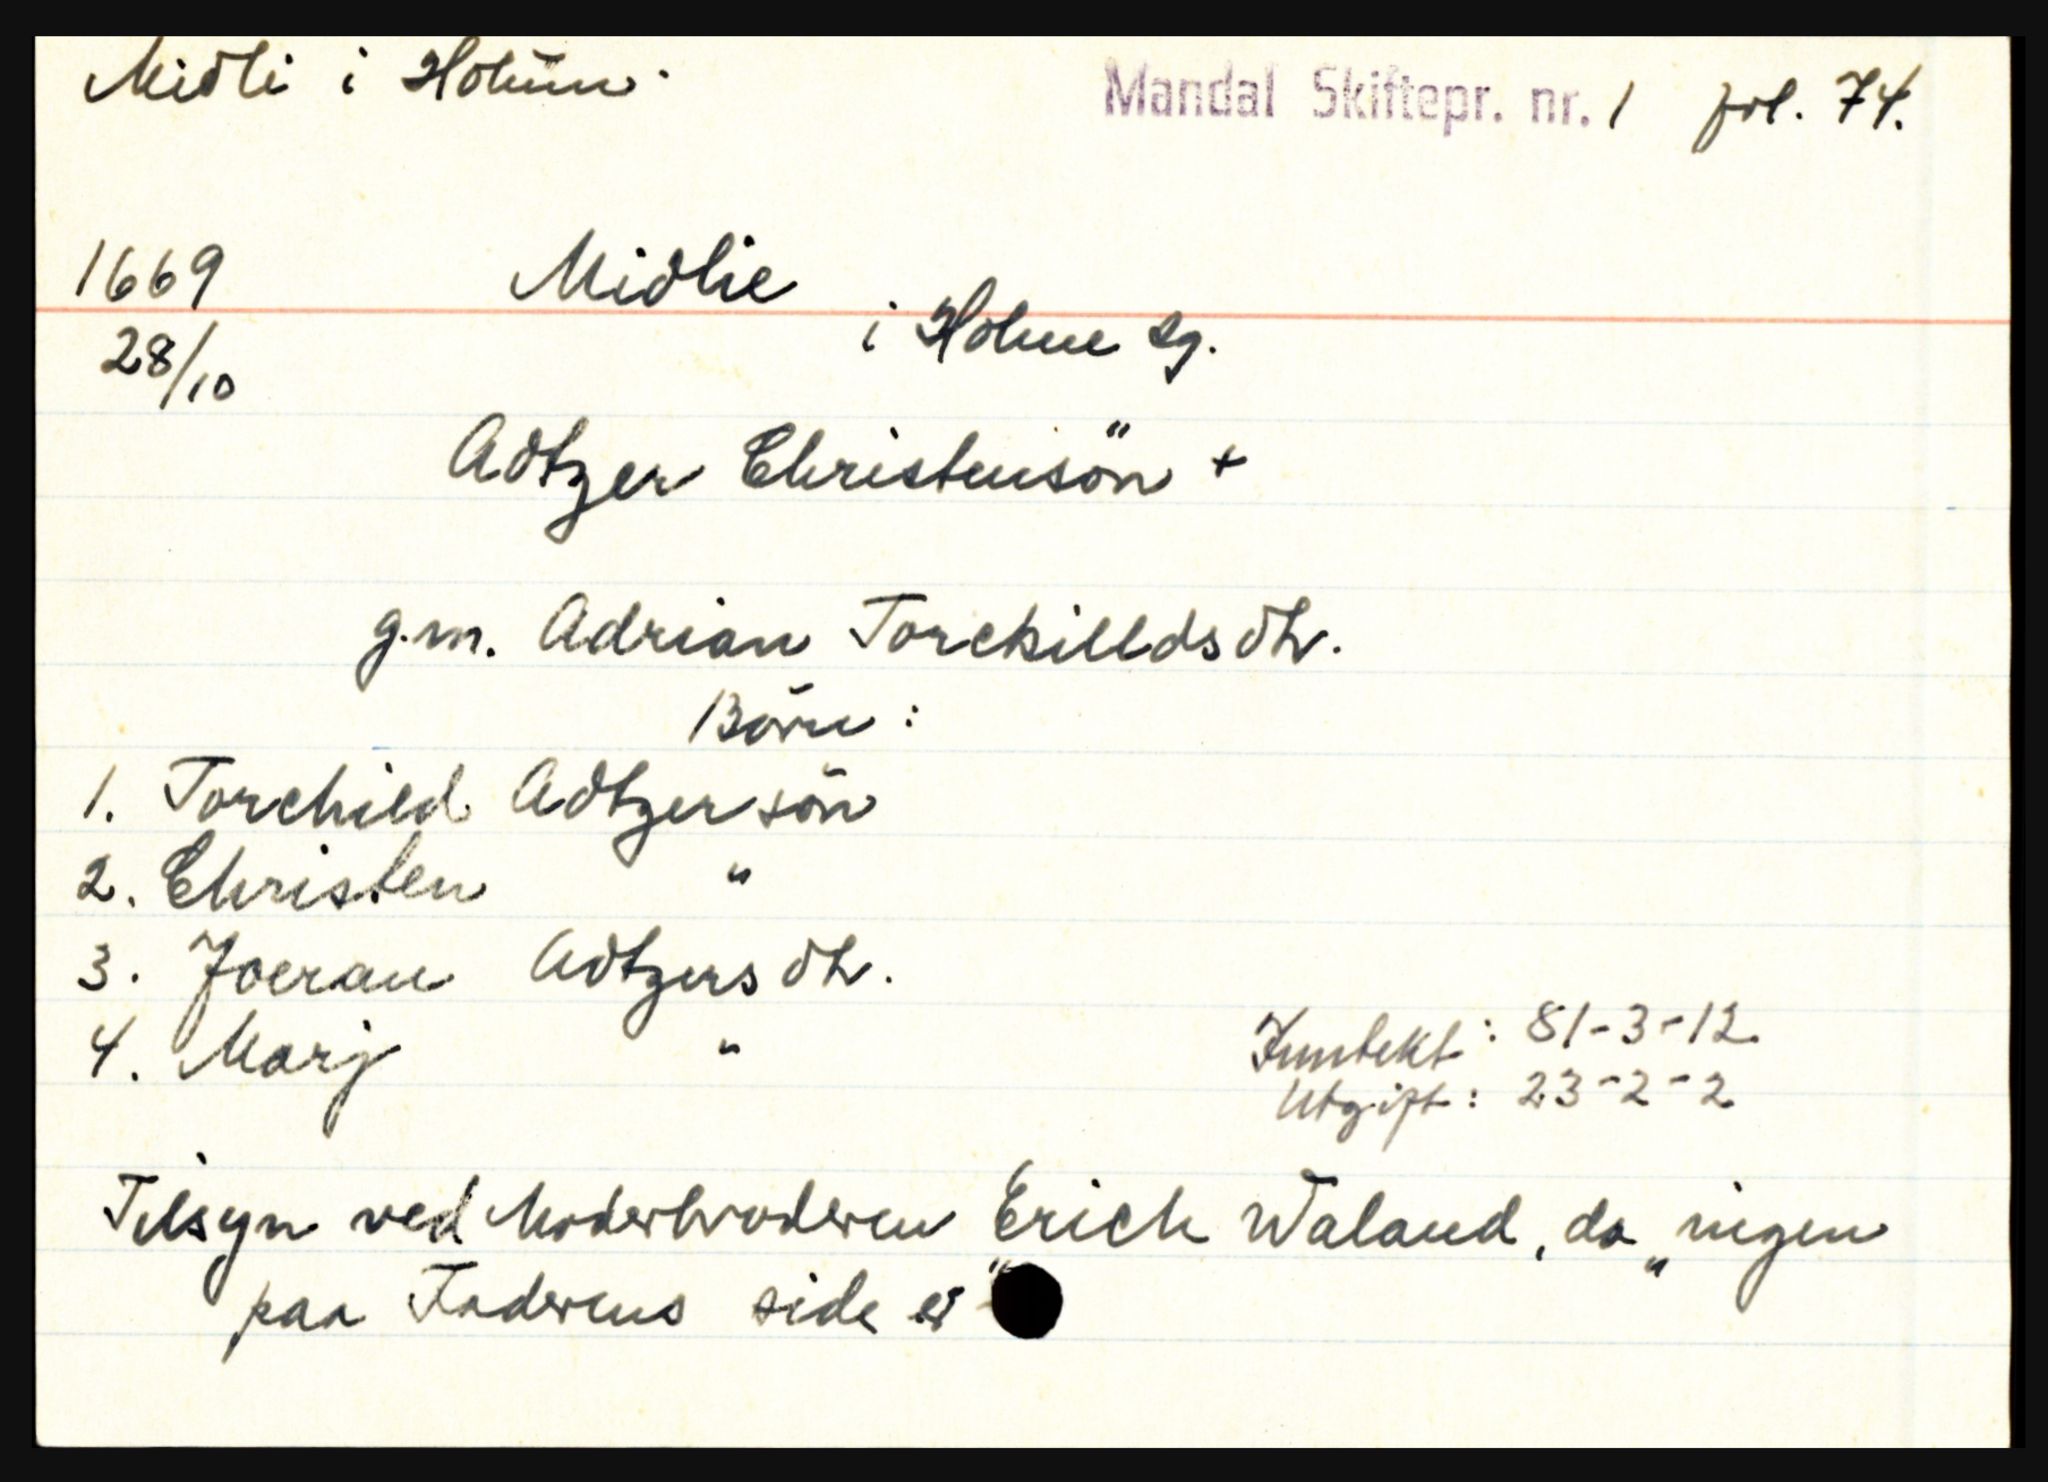 Midli i Holum.
Mandal Skiftepr. nr. 1 fol. 74.
1669
28/10
Midlie
i Holme sg.
Adtzer Christensön +
g.m. Adrian Torckilldsdtr.
Börn:
1. Torchild Adtzersön
2. Christen "
3. Joeran Adtzersdtr.
4. Marj "
Inntekt: 81-3-12
Utgift: 23-2-2
Tilsyn ved Moderbroderen Erich Waland, da „ingen
paa Faderens side er"